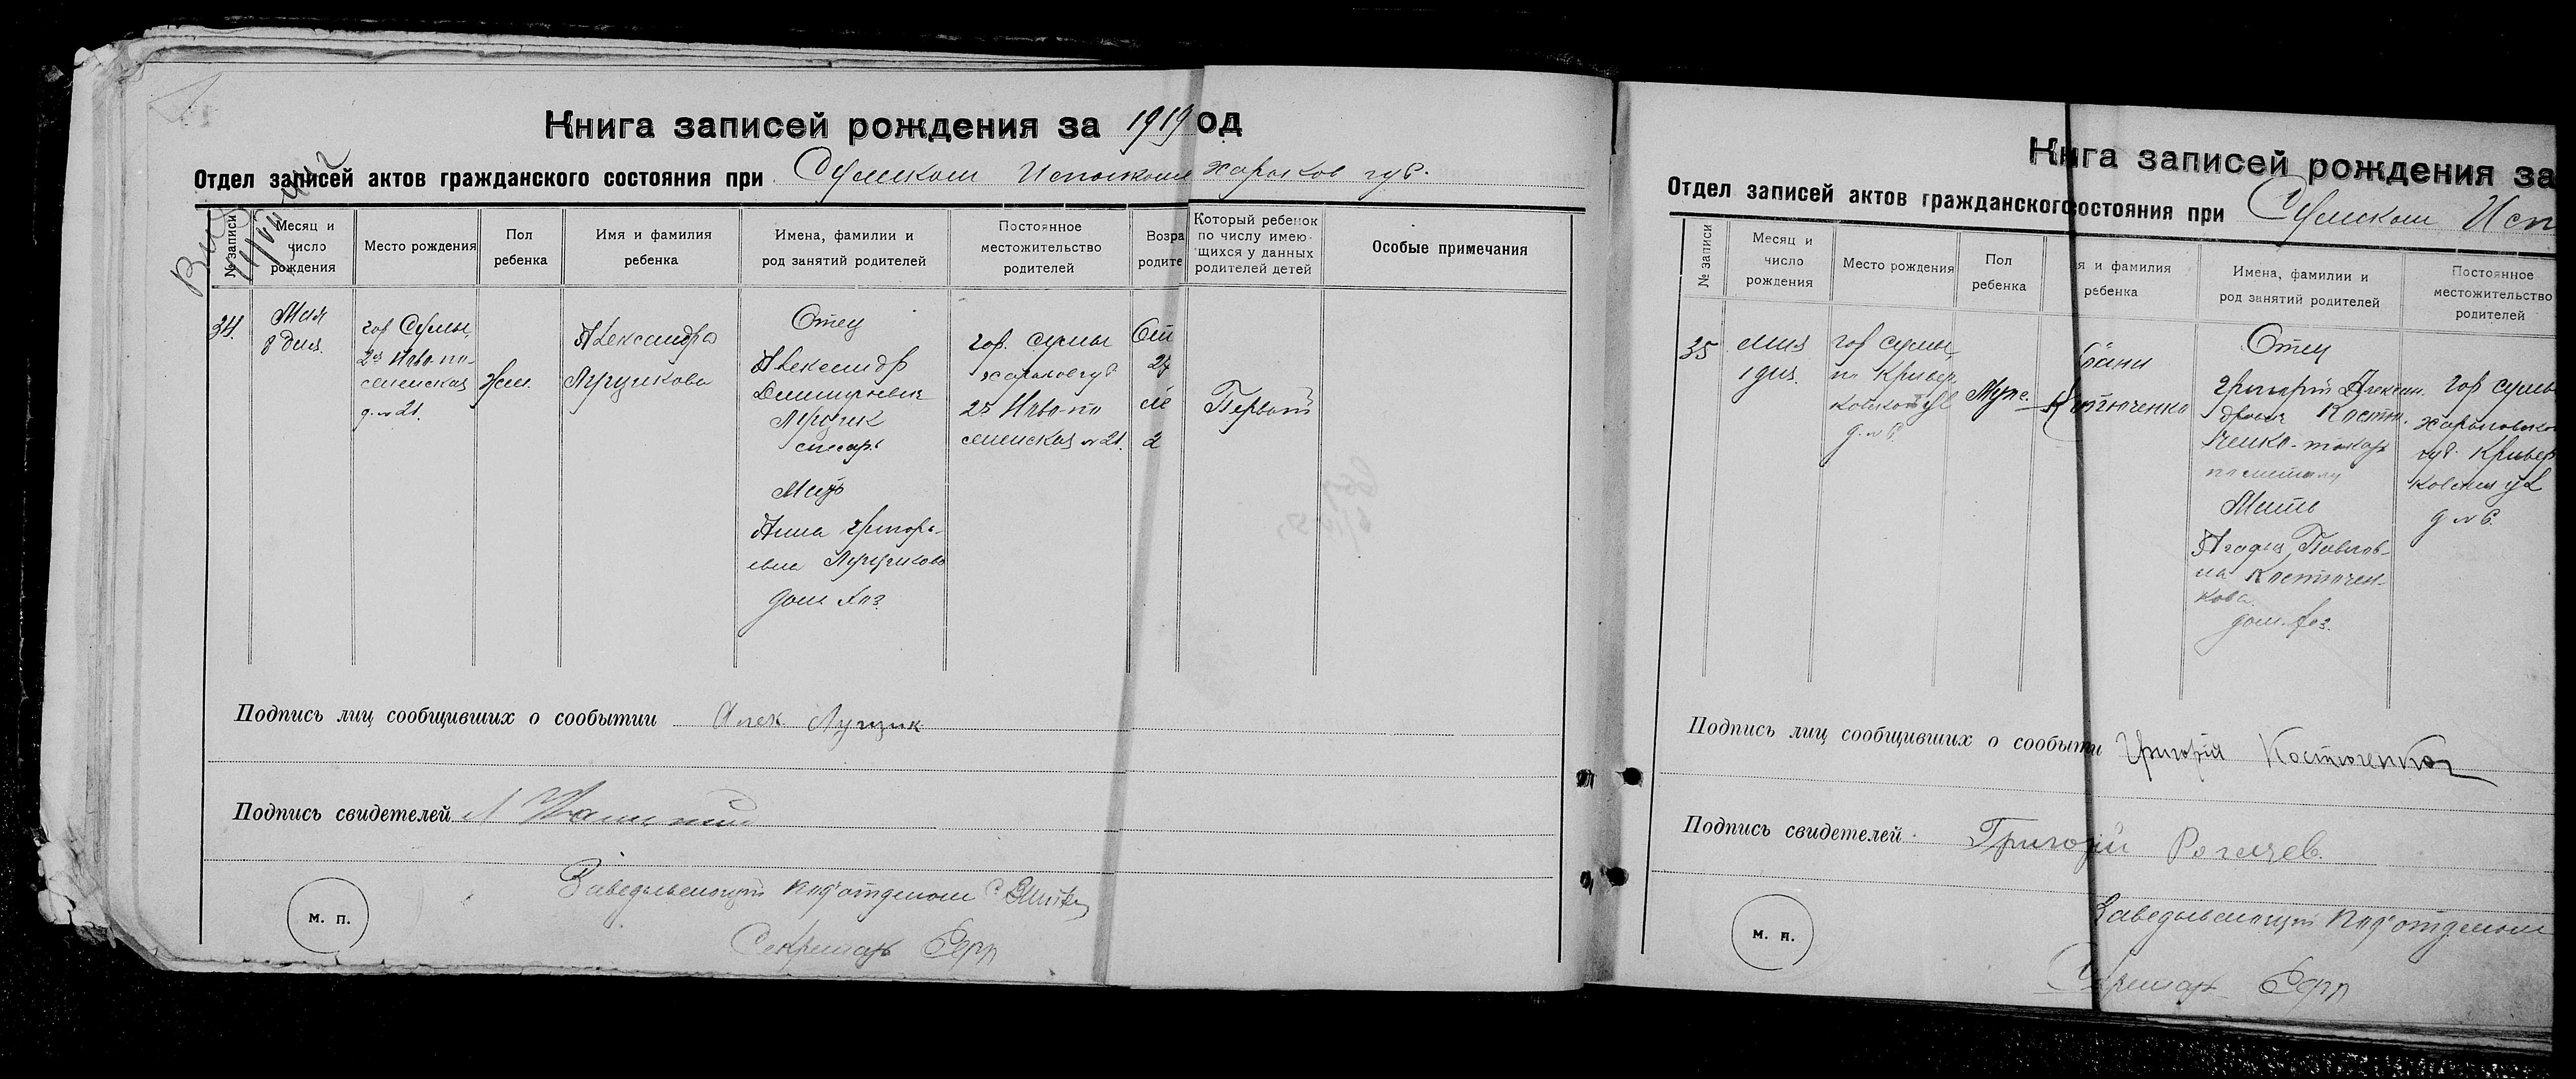 Книга записей рождения за 1919 од
Отдел записей актов гражданского состояния при Сумском Исполкоме Харьков губ.
№ записи
Месяц и число рождения
Место рождения
Пол ребенка
Имя и фамилия ребенка
Имена, фамилии и род занятий родителей
Постоянное местожительство родителей
Возра родите
Который ребенок по числу имею-щихся у данных родителей детей
Особые примечания
34.
Мая
8 дня.
гор Сумы,
2я Ново-по-
сел
д. № 21.
Жен.
Александра
Отец
Александр
слесарь
Мать
Анна Григорь-
евна
дом хоз.
гор. Сумы
Харьков губ
2я Ново-по
№ 21.
От
Первый
Подпись лиц сообщивших о событии Алек Лущик
Подпись свидетелей
Заведывающий под'отделом
Секретарь
м. п.
Книга записей рождения за
Отдел записей актов гражданского состояния при Сумском Исп
№ записи
Месяц и число рождения
Место рождения
Пол ребенка
я и фамилия ребенка
Имена, фамилии и род занятий родителей
Постоянное местожительство родителей
35
мая
1 дня.
гор Сумы,
д. № 6.
Муж.
Костюченко
Отец
Григорий Алексан.
дрович Костю.
ченко-токарь
по металлу
Мать
Павлов-
на Костючен-
кова.
дом. хоз.
гор Сумы
Харьковской
губ.
д № 6.
Подпись лиц сообщивших о событи Григорий Костюченко
Подпись свидетелей Григорий Рогачев.
Заведывающий под'отделом
Секретарь
м. п.